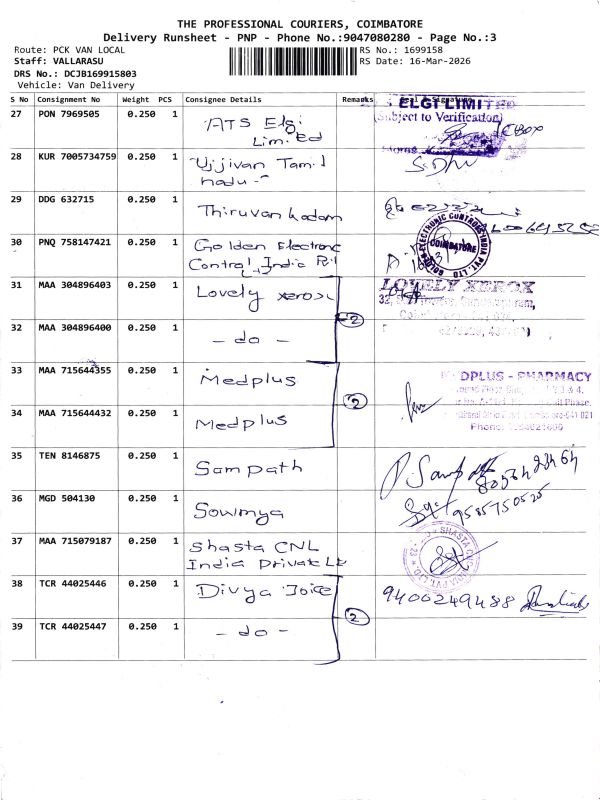 THE PROFESSIONAL COURIERS, COIMBATORE
Delivery Runsheet - PNP - Phone No.:9047080280 - Page No.:3
Route: PCK VAN LOCAL
RS No.: 1699158
Staff: VALLARASU
RS Date: 16-Mar-2026
DRS No.: DCJB169915803
Vehicle: Van Delivery
S No Consignment No Weight PCS Consignee Details Remarks Seal & Signature
27 PON 7969505 0.250 1 ATS Elgi Limited
ELGI LIMITED
(Subject to Verification)
28 KUR 7005734759 0.250 1 Ujjivan Tamil nadu
29 DDG 632715 0.250 1 Thiruvan kadam
30 PNQ 758147421 0.250 1 Golden Electronc Control India Pvt
GOLDEN ELECTRONIC CONTROLS INDIA PVT. LTD
COIMBATORE
31 MAA 304896403 0.250 1 Lovely xerox
LOVELY XEROX
32 MAA 304896400 0.250 1 - do - 2
33 MAA 715644355 0.250 1 Medplus
MEDPLUS - PHARMACY
34 MAA 715644432 0.250 1 Medplus 2
Phone:
35 TEN 8146875 0.250 1 Sampath P. Sampath
36 MGD 504130 0.250 1 Sowmya 9585750525
37 MAA 715079187 0.250 1 Shasta CNL India Private Lt
38 TCR 44025446 0.250 1 Divya Joice 9400249488
39 TCR 44025447 0.250 1 - do - 2